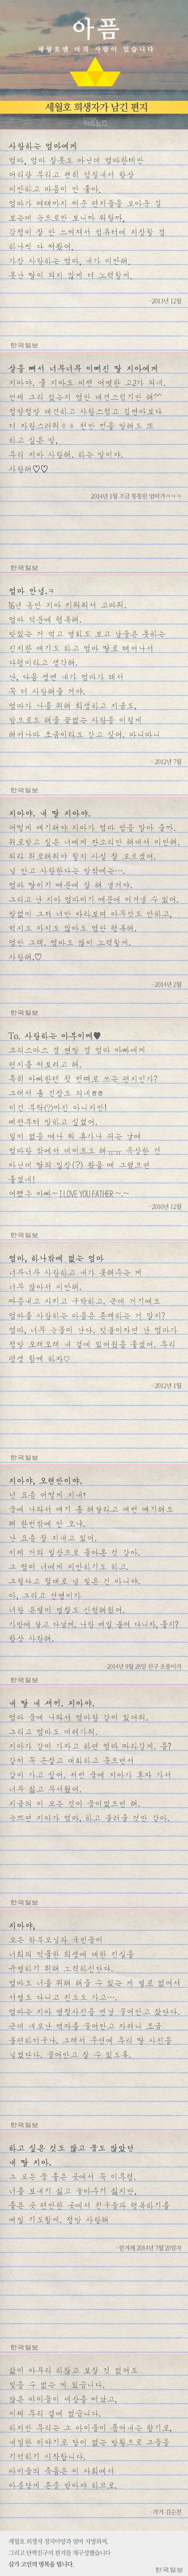 아픔
세월호엔 아직 사람이 있습니다
세월호 희생자가 남긴 편지
한국일보
사랑하는 엄마에게
엄마, 엄마 잘못도 아닌데 엄마한테만
어리광 부리고 괜히 심술내서 항상
미안하고 마음이 안 좋아.
엄마가 여태까지 써준 편지들을 모아둔 걸
보는데 눈으로만 보니까 뭐랄까,
감정이 잘 안 느껴져서 컴퓨터에 저장할 겸
하나씩 다 써봤어.
가장 사랑하는 엄마, 내가 미안해.
못난 딸이 되지 않게 더 노력할게.
-2013년 12월
한국일보
살을 빼서 너무너무 이뻐진 딸 지아에게
지아야. 울 지아도 이젠 어엿한 고2가 되네.
언제 그리 컸는지 엄만 대견스럽기만 해^^
정말정말 대견하고 사랑스럽고 길연아보다
더 자랑스러워ㅎㅎ 천만 번을 말해도 또
하고 싶은 말,
우리 지아 사랑해, 하는 말이야.
사랑해♡♡
2014년 1월 조금 통통한 엄마가ㅋㅋㅋ
한국일보
엄마 안녕.ㅋ
16년 동안 지아 키워줘서 고마워.
엄마 덕분에 행복해.
맛있는 거 먹고 영화도 보고 남들은 못하는
진지한 얘기도 하고 엄마 딸로 태어나서
다행이라고 생각해.
난, 다음 생엔 내가 엄마가 돼서
꼭 더 사랑해줄 거야.
엄마가 나를 위해 희생하고 지금도,
앞으로도 해줄 끝없는 사랑을 이렇게
해서나마 조금이라도 갚고 싶어. 마니마니
- 2012년 7월
한국일보
지아야. 내 딸 지아야.
어떻게 얘기해야 지아가 엄마 말을 알아 줄까.
위로받고 싶은 너에게 잔소리만 해대서 미안해.
뭐라 위로해줘야 할지 사실 잘 모르겠어.
널 안고 사랑한다는 말밖에는….
엄마 딸이기 때문에 잘 해 낼거야.
그리고 난 지아 엄마이기 때문에 이겨낼 수 있어.
말없이 그저 너만 바라보며 아무것도 안하고,
먹지도 자지도 않아도 엄만 행복해.
엄만 그래. 엄마도 많이 노력할게.
사랑해.♡
- 2014년 2월
한국일보
To. 사랑하는 아부이께♥
크리스마스 겸 연말 겸 엄마 아빠에게
편지를 써보려고 해.
특히 아빠한텐 첫 번째로 쓰는 편지인가?
그래서 올 긴장도 되네ㅎㅎ
이건 부탁(?)까진 아니지만!
예전부터 말하고 싶었어.
일이 없을 때나 뭐 휴가나 쉬는 날에
엄마랑 밖에서 데이트도 해ㅠㅠ 속상한 건
아닌데 딸의 입장(?) 봤을 때 그랬으면
좋겠네!
어쨌든 아빠~ I LOVE YOU FATHER ~ ~
-2010년 12월
한국일보
엄마, 하나밖에 없는 엄마
너무너무 사랑하고 내가 못해주는 게
너무 많아서 미안해.
짜증내고 시키고 구박하고. 근데 거기에도
엄마를 사랑하는 마음은 존재하는 거 알지?
엄마, 너무 눈물이 난다. 덧붙이자면 난 엄마가
정말 오래오래 내 곁에 있어줬음 좋겠어. 우리
평생 함께 하자♡
- 2012년 1월
한국일보
지아야, 오랜만이야.
넌 요즘 어떻게 지내?
꿈에 나와서 얘기 좀 해달라고 매번 얘기해도
왜 한번밖에 안 오냐.
난 요즘 잘 지내고 있어.
이제 거의 일상으로 돌아온 것 같아.
그 점이 너에게 미안하기도 하고.
그렇다고 절대로 널 잊은 건 아니야.
아, 그리고 선영이가
너랑 은별이 명찰도 신청해줬어.
가방에 달고 다닐게. 나랑 매일 붙어 다니자, 좋지?
항상 사랑해.
-2014년 9월 28일 친구 초롱이가
한국일보
내 딸 내 새끼. 지아야.
엄마 꿈에 나와서 엄마랑 같이 있어줘.
그리고 엄마도 데려가줘.
지아가 같이 가자고 하면 엄마 따라갈게. 응?
같이 꼭 손잡고 대화하고 웃으면서
같이 가고 싶어. 저번 꿈에 지아가 혼자 가서
너무 싫고 무서웠어.
지금의 이 모든 것이 꿈이었으면 해.
눈뜨면 지아가 엄마, 하고 불러줄 것만 같아.
한국일보
지아야,
모든 학부모님과 국민들이
너희의 억울한 희생에 대한 진실을
규명하기 위해 노력하신단다.
엄마도 너를 위해 해줄 수 있는 게 별로 없어서
서명도 다니고 진도도 가고….
엄마는 지아 영정사진을 맨날 끌어안고 잤단다.
근데 네모난 액자를 끌어안고 자려니 조금
불편하더구나. 그래서 쿠션에 우리 딸 사진을
넣었단다. 끌어안고 잘 수 있도록.
한국일보
하고 싶은 것도 많고 꿈도 많았던
내 딸 지아.
그 모든 꿈 좋은 곳에서 꼭 이루렴.
너를 보내기 싫고 놓아주기 싫지만,
좋은 곳 편안한 곳에서 친구들과 행복하기를
매일 기도할게. 정말 사랑해
-한겨레 2014년 7월 20일자
한국일보
삶이 아무리 하찮고 보잘 것 없어도
잊을 수 없는 게 있습니다.
많은 아이들이 세상을 떠났고,
이제 우리 곁에 없습니다.
하지만 우리는 그 아이들이 품어내는 향기로,
내일의 이야기로 말이 없는 방황으로 그들을
기억하기 시작합니다.
아이들의 죽음은 이 사회에서
아름답게 혼을 담아야 하므로.
-작가 김순천
세월호 희생자 정지아양과 엄마 지영희씨,
그리고 단짝친구의 편지를 재구성했습니다
삼가 고인의 명복을 빕니다.
한국일보